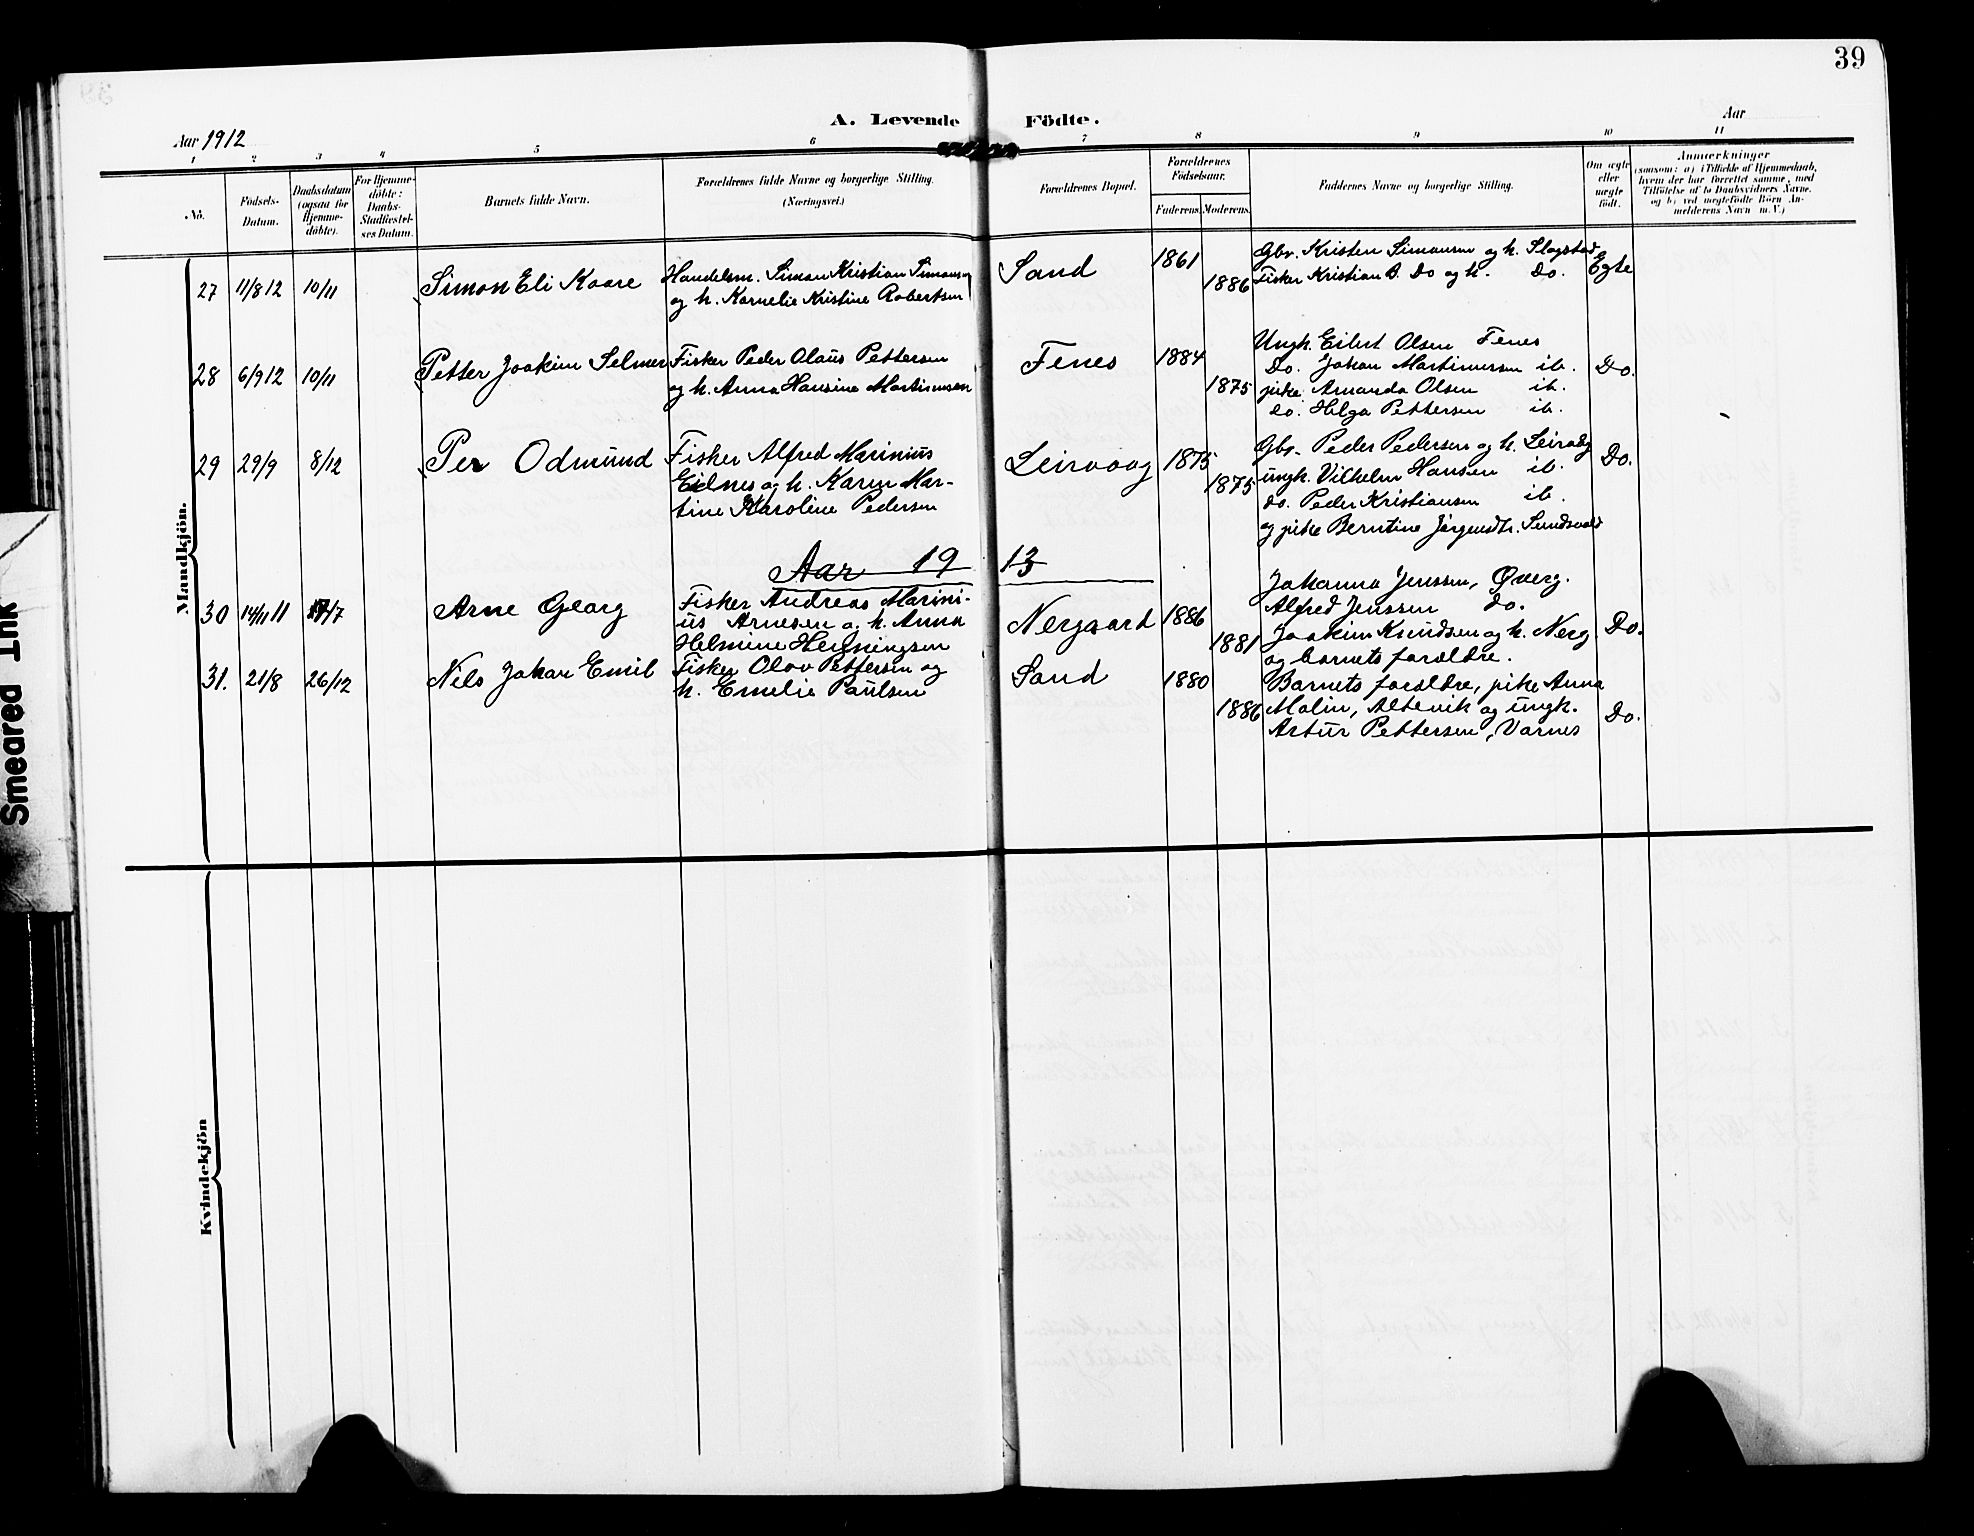 39
A. Levende Födte.
Aar 1912
Aar
1 2 3 4 5 6 7 8 9 10 11
No.
Födsels-
Datum.
Daabsdatum
(ogsaa for
Hjemme-
döbte).
For Hjemme-
döbte:
Daabs-
Stadfæstel-
ses Datum.
Barnets fulde Navn.
Forældrenes fulde Navne og borgerlige Stilling.
(Næringsvei.)
Forældrenes Bopæl.
Forældrenes
Födselsaar.
Faderens. Moderens.
Faddernes Navne og borgerlige Stilling.
Om ægte
eller
uægte
födt.
Anmærkninger
(saasom: a) i Tilfælde af Hjemmedaab,
hvem der har forrettet samme, med
Tilföielse af to Daabsvidners Navne.
og b) ved uægtefödte Börn An-
melderens Navn m. V.)
Mandkjön.
27 11/8 12 10/11 Simon Eli Kaare
Handelsm. Simon Kristian Simonsen
og h. Kornelie Kristine Robertsen
Sand 1861 1886
Gbr. Kristen Simonsen og h. Slogstad
Fisker Kristian B. Do og h. Do.
Egte
28 6/9 12 10/11 Petter Joakim Selmer
Fisker Peder Olaus Pettersen
og h. Anna Hansine Martinusen
Fenes 1884 1875
Ungk. Eilert Olsen Fenes
Do. Johan Martinussen ib.
pike Amanda Olsen ib.
do. Helga Pettersen ib.
Do.
29 29/9 8/12 Per Odmund
Fisker Alfred Marinius
Eidnes og h. Karen Mar-
tine Karoline Pedersen
Leirvaag 1875 1875
Gbr. Peder Pedersen og h. Leirvåg
ungk. Vilhelm Hansen ib.
do. Peder Kristiansen ib.
og pike Berntine Jørgensdtr. Sundsvold
Do.
Aar 1913
30 14/11 11 17/7 Arne Georg
Fisker Andreas Marini-
us Arnesen o. h. Anna
Helmine Henningsen
Nergaard 1886 1881
Johanna Jenssen, Øverg.
Alfred Jenssen do.
Joakim Knudsen og h. Nerg.
og barnets forældre.
Do.
31. 21/8 26/12 Nils Johan Emil
Fisker Olav Pettersen og
h. Emelie Paulsen
Sand 1880 1886
Barnets forældre, pike Anna
Malin, Altevik og ungk.
Artur Pettersen, Varnes
Do.
Kvindekjön
Smeared Ink